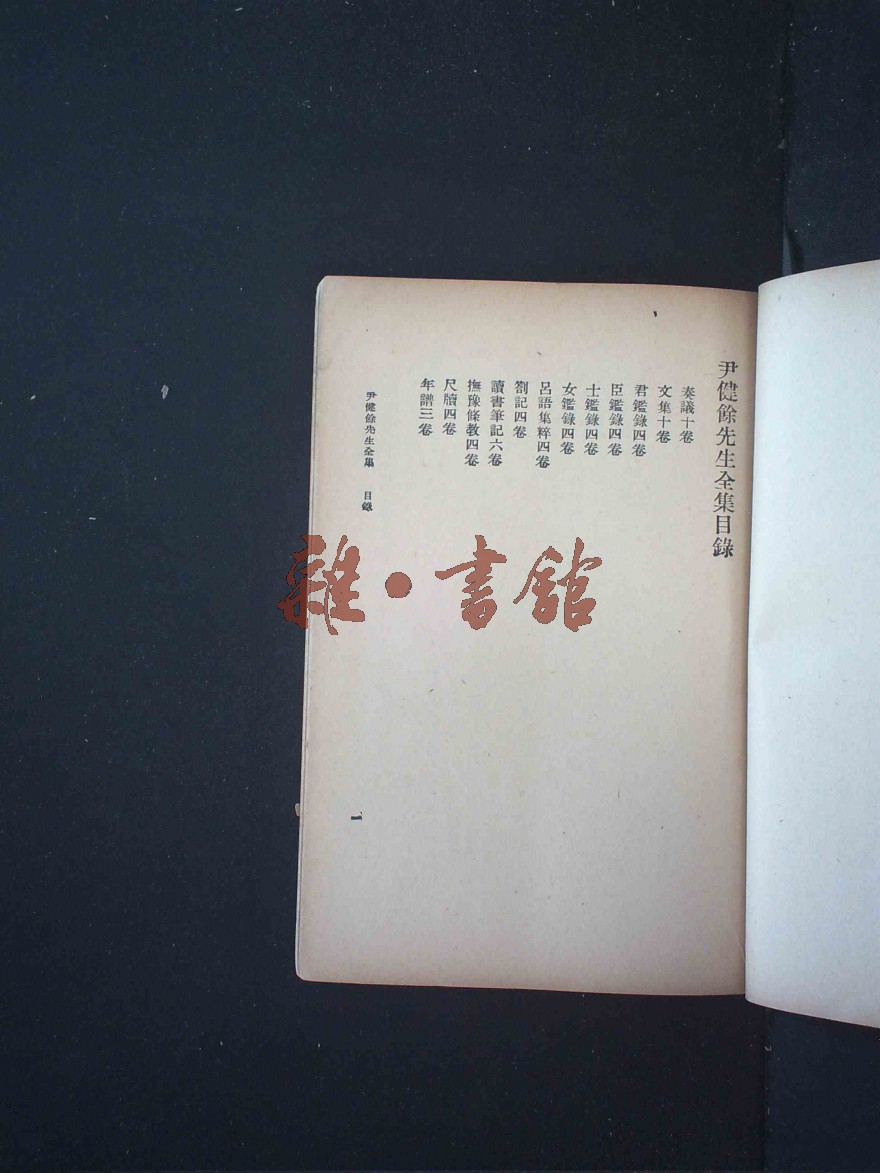 尹健餘先生全集目錄
奏議十卷
文集十卷
君鑑錄四卷
臣鑑錄四卷
士鑑錄四卷
女鑑錄四卷
呂語集粹四卷
劄記四卷
讀書筆記六卷
撫豫條教四卷
尺牘四卷
年譜三卷
尹健餘先生全集 目錄
一
雜·書館